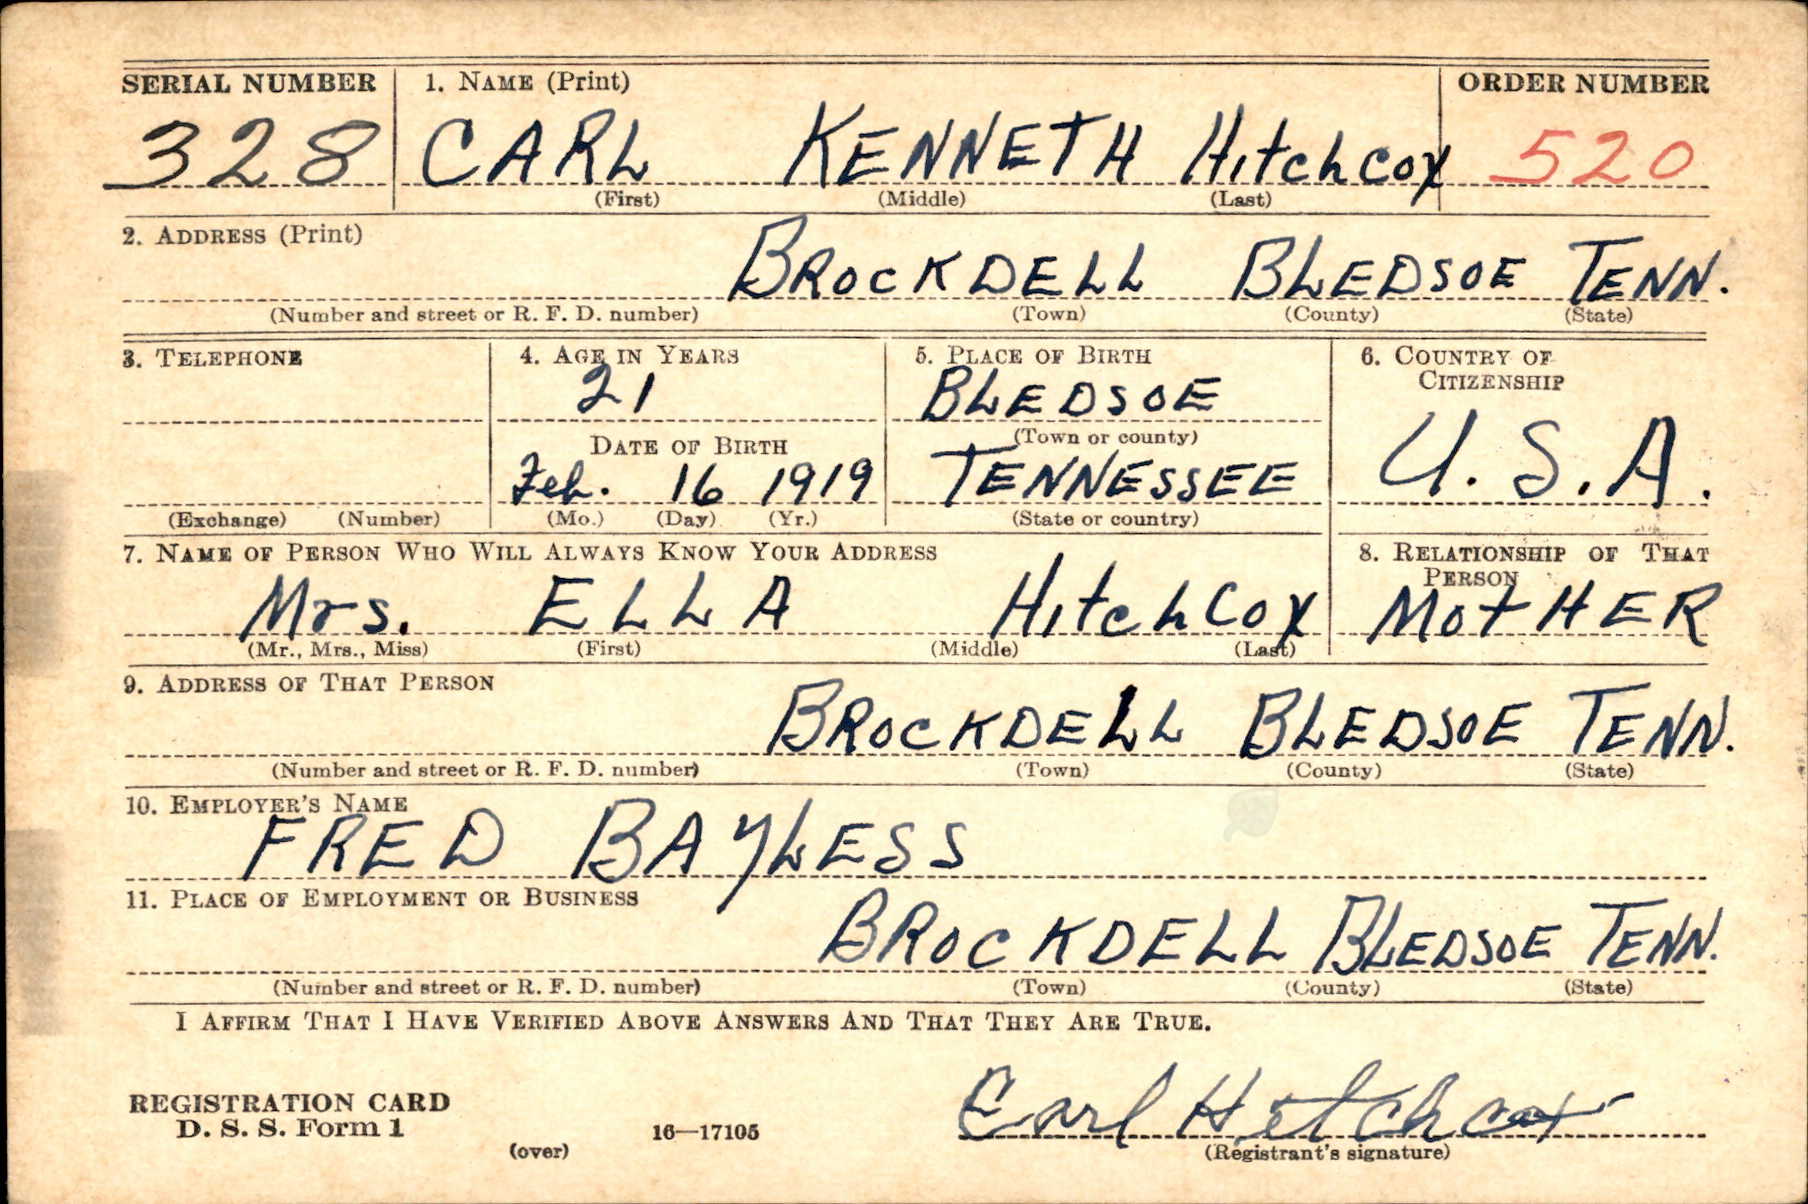 SERIAL NUMBER 1. NAME (Print) ORDER NUMBER
328 CARL KENNETH Hitchcox 520
(First) (Middle) (Last)
2. ADDRESS (Print)
BROCKDELL BLEDSOE TENN.
(Number and street or R. F. D. number) (Town) (County) (State)
3. TELEPHONE 4. AGE IN YEARS 5. PLACE OF BIRTH 6. COUNTRY OF
CITIZENSHIP
21 BLEDSOE
DATE OF BIRTH (Town or county)
Feb. 16 1919 TENNESSEE U.S.A.
(Exchange) (Number) (Mo.) (Day) (Yr.) (State or country)
7. NAME OF PERSON WHO WILL ALWAYS KNOW YOUR ADDRESS 8. RELATIONSHIP OF THAT
PERSON
Mrs. ELLA HitchCox MotHER
(Mr., Mrs., Miss) (First) (Middle) (Last)
9. ADDRESS OF THAT PERSON
BROCKDELL BLEDSOE TENN.
(Number and street or R. F. D. number) (Town) (County) (State)
10. EMPLOYER'S NAME
FRED BAYLESS
11. PLACE OF EMPLOYMENT OR BUSINESS
BROCKDELL BLEDSOE TENN.
(Number and street or R. F. D. number) (Town) (County) (State)
I AFFIRM THAT I HAVE VERIFIED ABOVE ANSWERS AND THAT THEY ARE TRUE.
REGISTRATION CARD
D. S. S. Form 1
(over) 16—17105
Earl Hitchcox
(Registrant's signature)